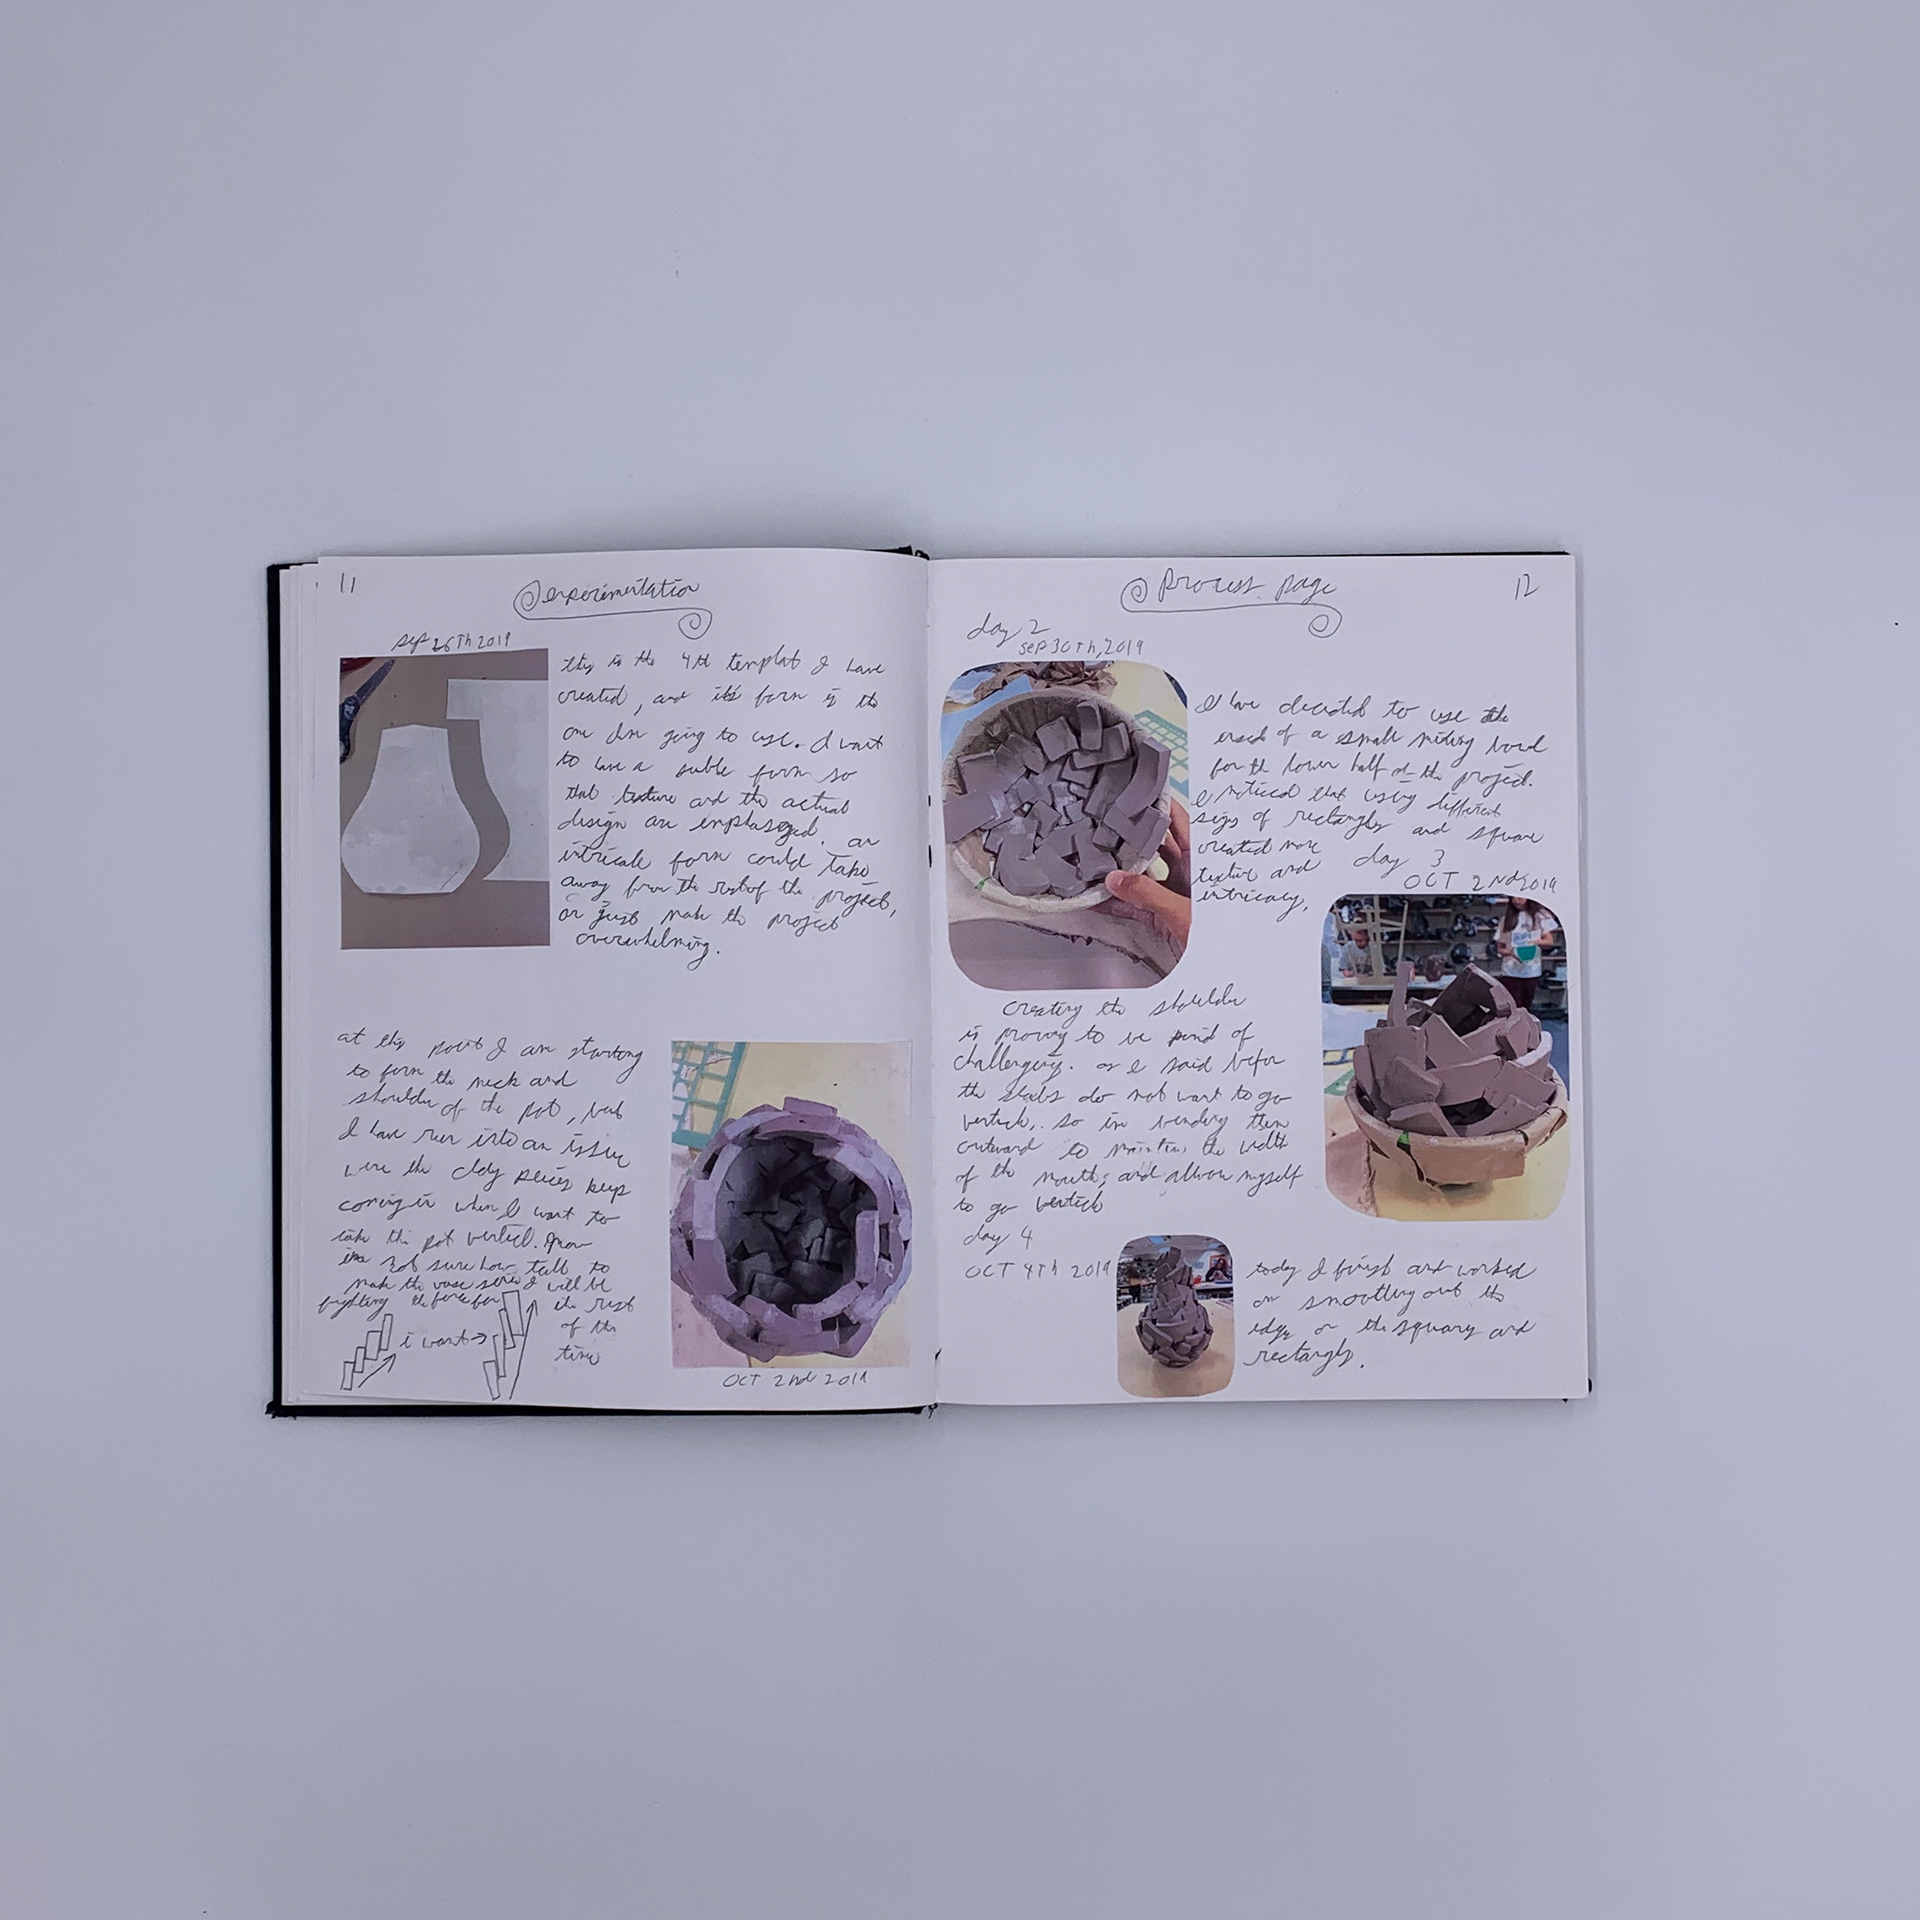 11
experimentation
sep 26Th 2019
this is the 4th templat I have
created, and its form is the
one Im going to use. I want
to have a suble form so
that texture and the actual
design are emphasized. an
intricate form could take
away from the rest of the project,
or just make the project
overwhelming.
at this point I am starting
to form the neck and
shoulder of the pot, but
I have run into an issue
were the clay peices keep
coming in when I want to
take the pot vertical. Now
im not sure how tall to
make the vase since I will be
fighting the force for
the rest
of the
time
i want
OCT 2nd 2019
Process page
12
day 2
sep 30Th, 2019
I have decided to use the
of a small mixing bowl
for the lower half of the project.
I noticed that using different
sizes of rectangles and square
created more
texture and
intricacy.
day 3
OCT 2Nd 2019
creating the shoulder
is proving to be kind of
challenging. as I said befor
the slabs do not want to go
vertical,. so im bending them
outward to maintain the width
of the mouth; and allow myself
to go vertical
day 4
OCT 4Th 2019
today I finish and worked
on smoothing out the
edges on the squares and
rectangles.